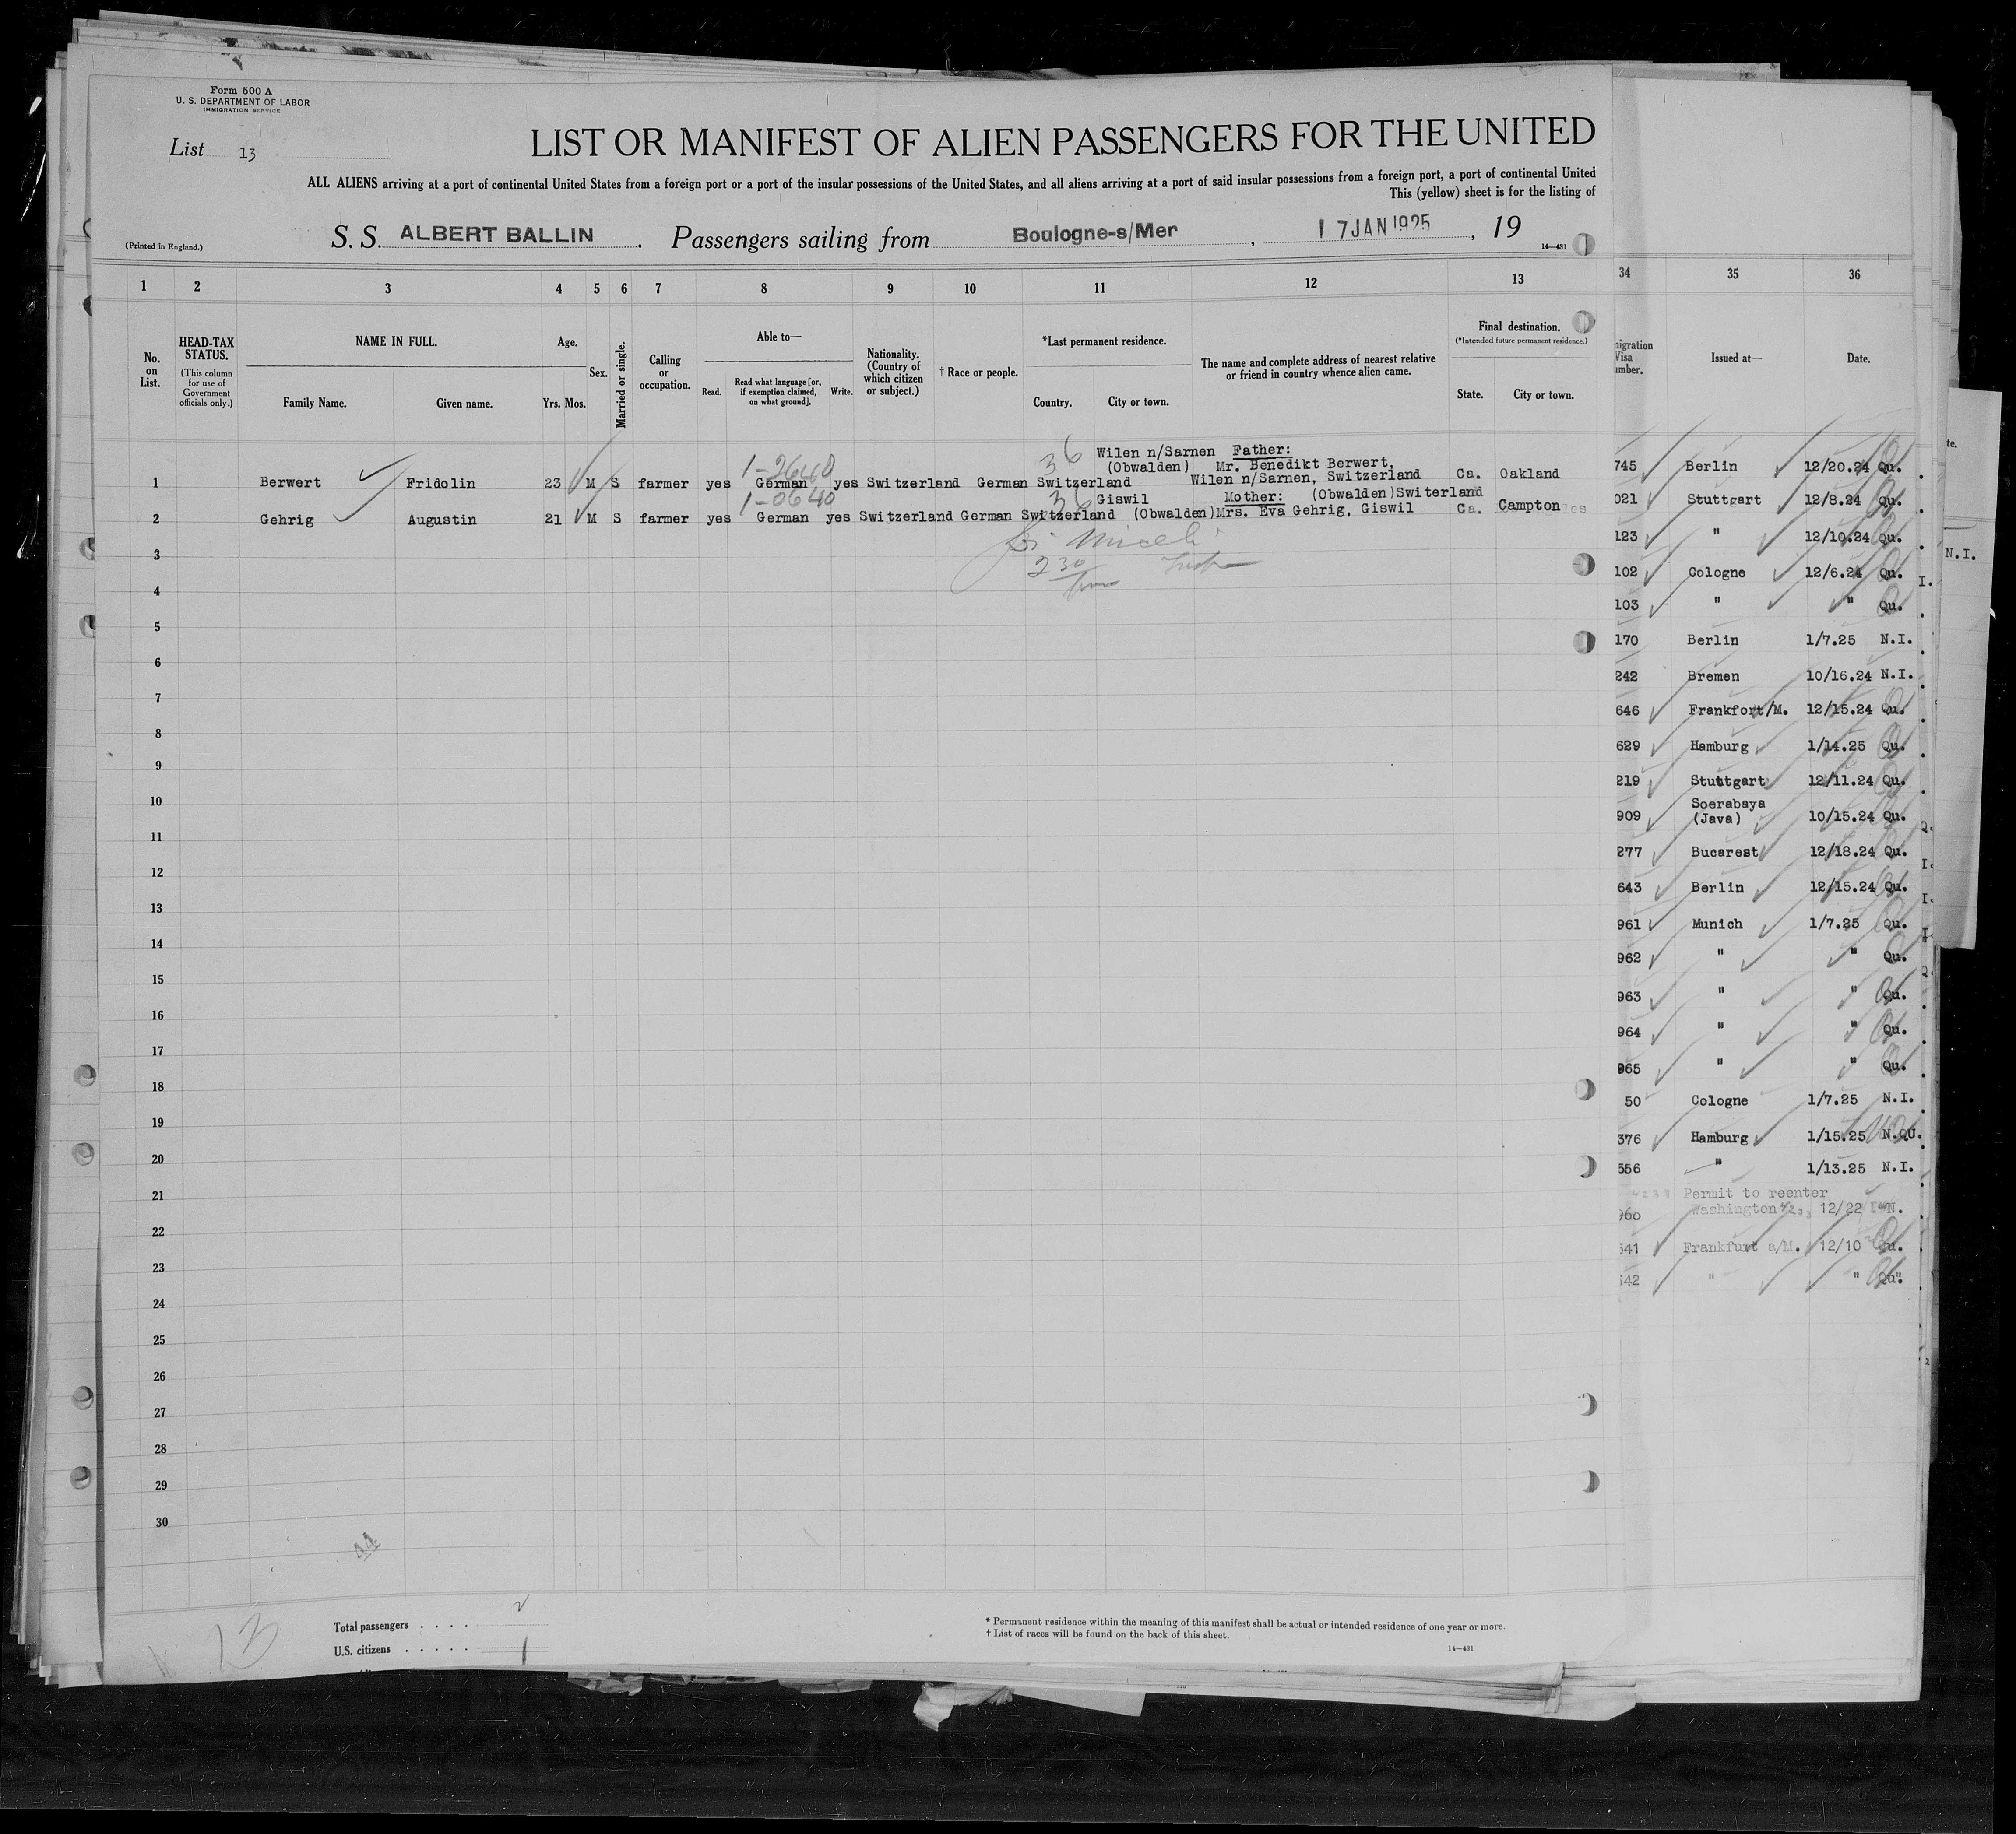 Form 500 A
U. S. DEPARTMENT OF LABOR
IMMIGRATION SERVICE
List 13
LIST OR MANIFEST OF ALIEN PASSENGERS FOR THE UNITED
ALL ALIENS arriving at a port of continental United States from a foreign port or a port of the insular possessions of the United States, and all aliens arriving at a port of said insular possessions from a foreign port, a port of continental United
This (yellow) sheet is for the listing of
(Printed in England.)
S. S. ALBERT BALLIN. Passengers sailing from Boulogne-s/Mer, 17 JAN 1925, 19
14—431
1 2 3 4 5 6 7 8 9 10 11 12 13
No. on List.
HEAD-TAX STATUS.
(This column for use of Government officials only.)
NAME IN FULL.
Family Name. Given name.
Age.
Yrs. Mos.
Sex.
Married or single.
Calling or occupation.
Able to—
Read.
Read what language [or, if exemption claimed, on what ground].
Write.
Nationality. (Country of which citizen or subject.)
† Race or people.
*Last permanent residence.
Country. City or town.
The name and complete address of nearest relative or friend in country whence alien came.
Final destination.
(*Intended future permanent residence.)
State. City or town.
1-2640 36 Wilen n/Sarnen Father:
(Obwalden) Mr. Benedikt Berwert,
1 Berwert Fridolin 23 M S farmer yes German yes Switzerland German Switzerland Wilen n/Sarnen, Switzerland Ca. Oakland
1-0640 36 Giswil Mother: (Obwalden)Switerland
2 Gehrig Augustin 21 M S farmer yes German yes Switzerland German Switzerland (Obwalden)Mrs. Eva Gehrig, Giswil Ca. Campton
3
4
5
6
7
8
9
10
11
12
13
14
15
16
17
18
19
20
21
22
23
24
25
26
27
28
29
30
Total passengers . . . .
U.S. citizens . . . . .
13
* Permanent residence within the meaning of this manifest shall be actual or intended residence of one year or more.
† List of races will be found on the back of this sheet.
14—431
34 35 36
migration Visa umber.
Issued at—
Date.
745 Berlin 12/20.24 Qu.
021 Stuttgart 12/8.24 Qu.
123 " 12/10.24 Qu.
102 Cologne 12/6.24 Qu.
103 " " Qu.
170 Berlin 1/7.25 N.I.
242 Bremen 10/16.24 N.I.
646 Frankfort/M. 12/15.24 Qu.
629 Hamburg 1/14.25 Qu.
219 Stuttgart 12/11.24 Qu.
909 Soerabaya (Java) 10/15.24 Qu.
277 Bucarest 12/18.24 Qu.
643 Berlin 12/15.24 Qu.
961 Munich 1/7.25 Qu.
962 " " Qu.
963 " " Qu.
964 " " Qu.
965 " " Qu.
50 Cologne 1/7.25 N.I.
376 Hamburg 1/15.25 N.QU.
556 " 1/13.25 N.I.
Permit to reenter
Washington 12/22
541 Frankfurt a/M. 12/10 Qu.
542 " " Qu.
te.
N.I.